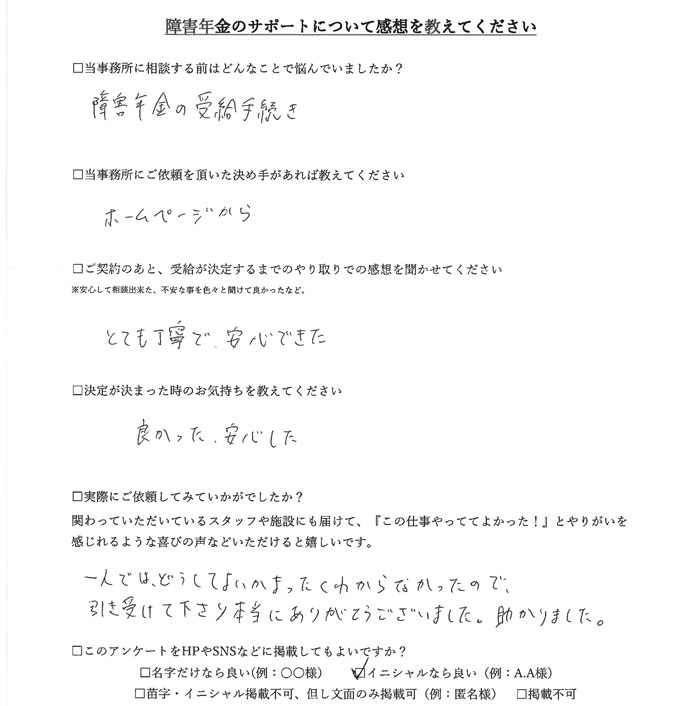 障害年金のサポートについて感想を教えてください
□当事務所に相談する前はどんなことで悩んでいましたか？
障害年金の受給手続き
□当事務所にご依頼を頂いた決め手があれば教えてください
ホームページから
□ご契約のあと、受給が決定するまでのやり取りでの感想を聞かせてください
※安心して相談出来た、不安な事を色々と聞けて良かったなど。
とても丁寧で、安心できた
□決定が決まった時のお気持ちを教えてください
良かった、安心した
□実際にご依頼してみていかがでしたか？
関わっていただいているスタッフや施設にも届けて、『この仕事やっててよかった！』とやりがいを
感じれるような喜びの声などいただけると嬉しいです。
一人では、どうしてよいかまったくわからなかったので、
引き受けて下さり本当にありがとうございました。助かりました。
□このアンケートをHPやSNSなどに掲載してもよいですか？
□名字だけなら良い(例：〇〇様) ☑イニシャルなら良い（例：A.A様）
□苗字・イニシャル掲載不可、但し文面のみ掲載可（例：匿名様） □掲載不可